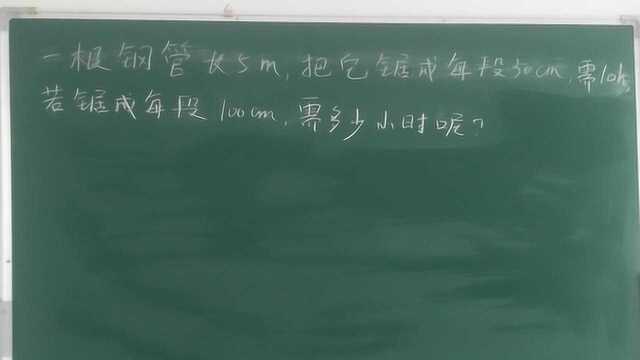 一根钢管长5m,把它锯成每段50cm,需10h,
若锯成每段100cm,需多少小时呢?